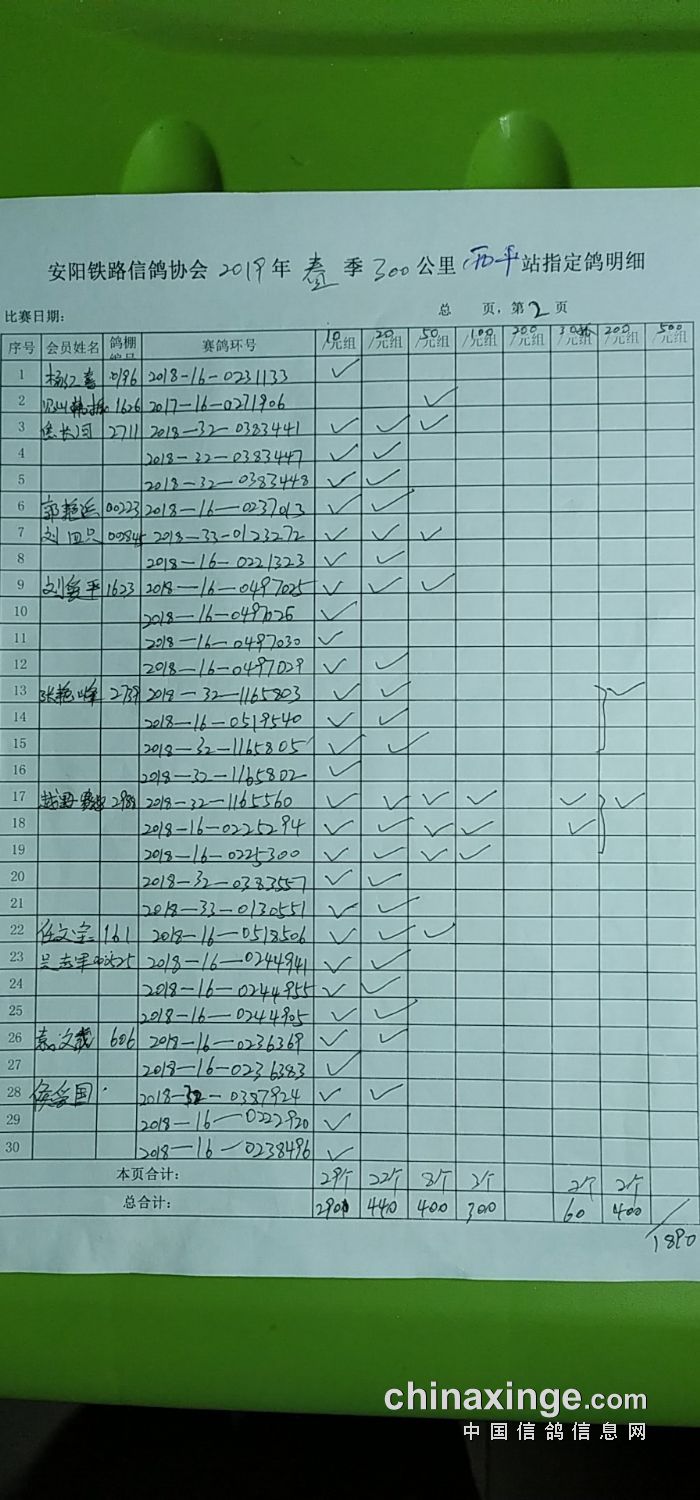 安阳铁路信鸽协会 2019年 春 季 300公里 西平 站指定鸽明细
比赛日期: 总 页, 第 2 页
序号 会员姓名 鸽棚 赛鸽环号 10/元组 20/元组 50/元组 100/元组 200/元组 30/元组 200/元组 500/元组
1 0196 2018-16-0231133 ✓
2 1626 2017-16-0271906 ✓
3 2711 2018-32-0383441 ✓ ✓ ✓
4 2018-32-0383447 ✓ ✓
5 2018-32-0383448 ✓ ✓
6 郭艳兵 00223 2018-16-0237013 ✓ ✓
7 刘四只 2018-33-0123272 ✓ ✓ ✓
8 2018-16-0221323 ✓ ✓
9 刘爱平 1623 2018-16-0497025 ✓ ✓ ✓
10 2018-16-0497026 ✓
11 2018-16-0497030 ✓
12 2018-16-0497029 ✓ ✓
13 张艳峰 2739 2018-32-1165803 ✓ ✓ ✓
14 2018-16-0519540 ✓ ✓
15 2018-32-1165805 ✓ ✓
16 2018-32-1165802 ✓
17 2018-32-1165560 ✓ ✓ ✓ ✓ ✓ ✓
18 2018-16-0225294 ✓ ✓ ✓ ✓ ✓
19 2018-16-0225300 ✓ ✓ ✓ ✓
20 2018-32-0383557 ✓ ✓
21 2018-33-0130551 ✓ ✓
22 任文宝 161 2018-16-0518506 ✓ ✓ ✓
23 吴志军 2018-16-0244941 ✓ ✓
24 2018-16-0244955 ✓ ✓
25 2018-16-0244905 ✓ ✓
26 606 2018-16-0236369 ✓ ✓
27 2018-16-0236383 ✓
28 侯爱国 2018-32-0387924 ✓ ✓
29 2018-16-0222920 ✓
30 2018-16-0238496 ✓
本页合计: 29个 22个 8个 3个 2个 2个
总合计: 290 440 400 300 60 400
1890
chinaxinge.com
中国信鸽信息网